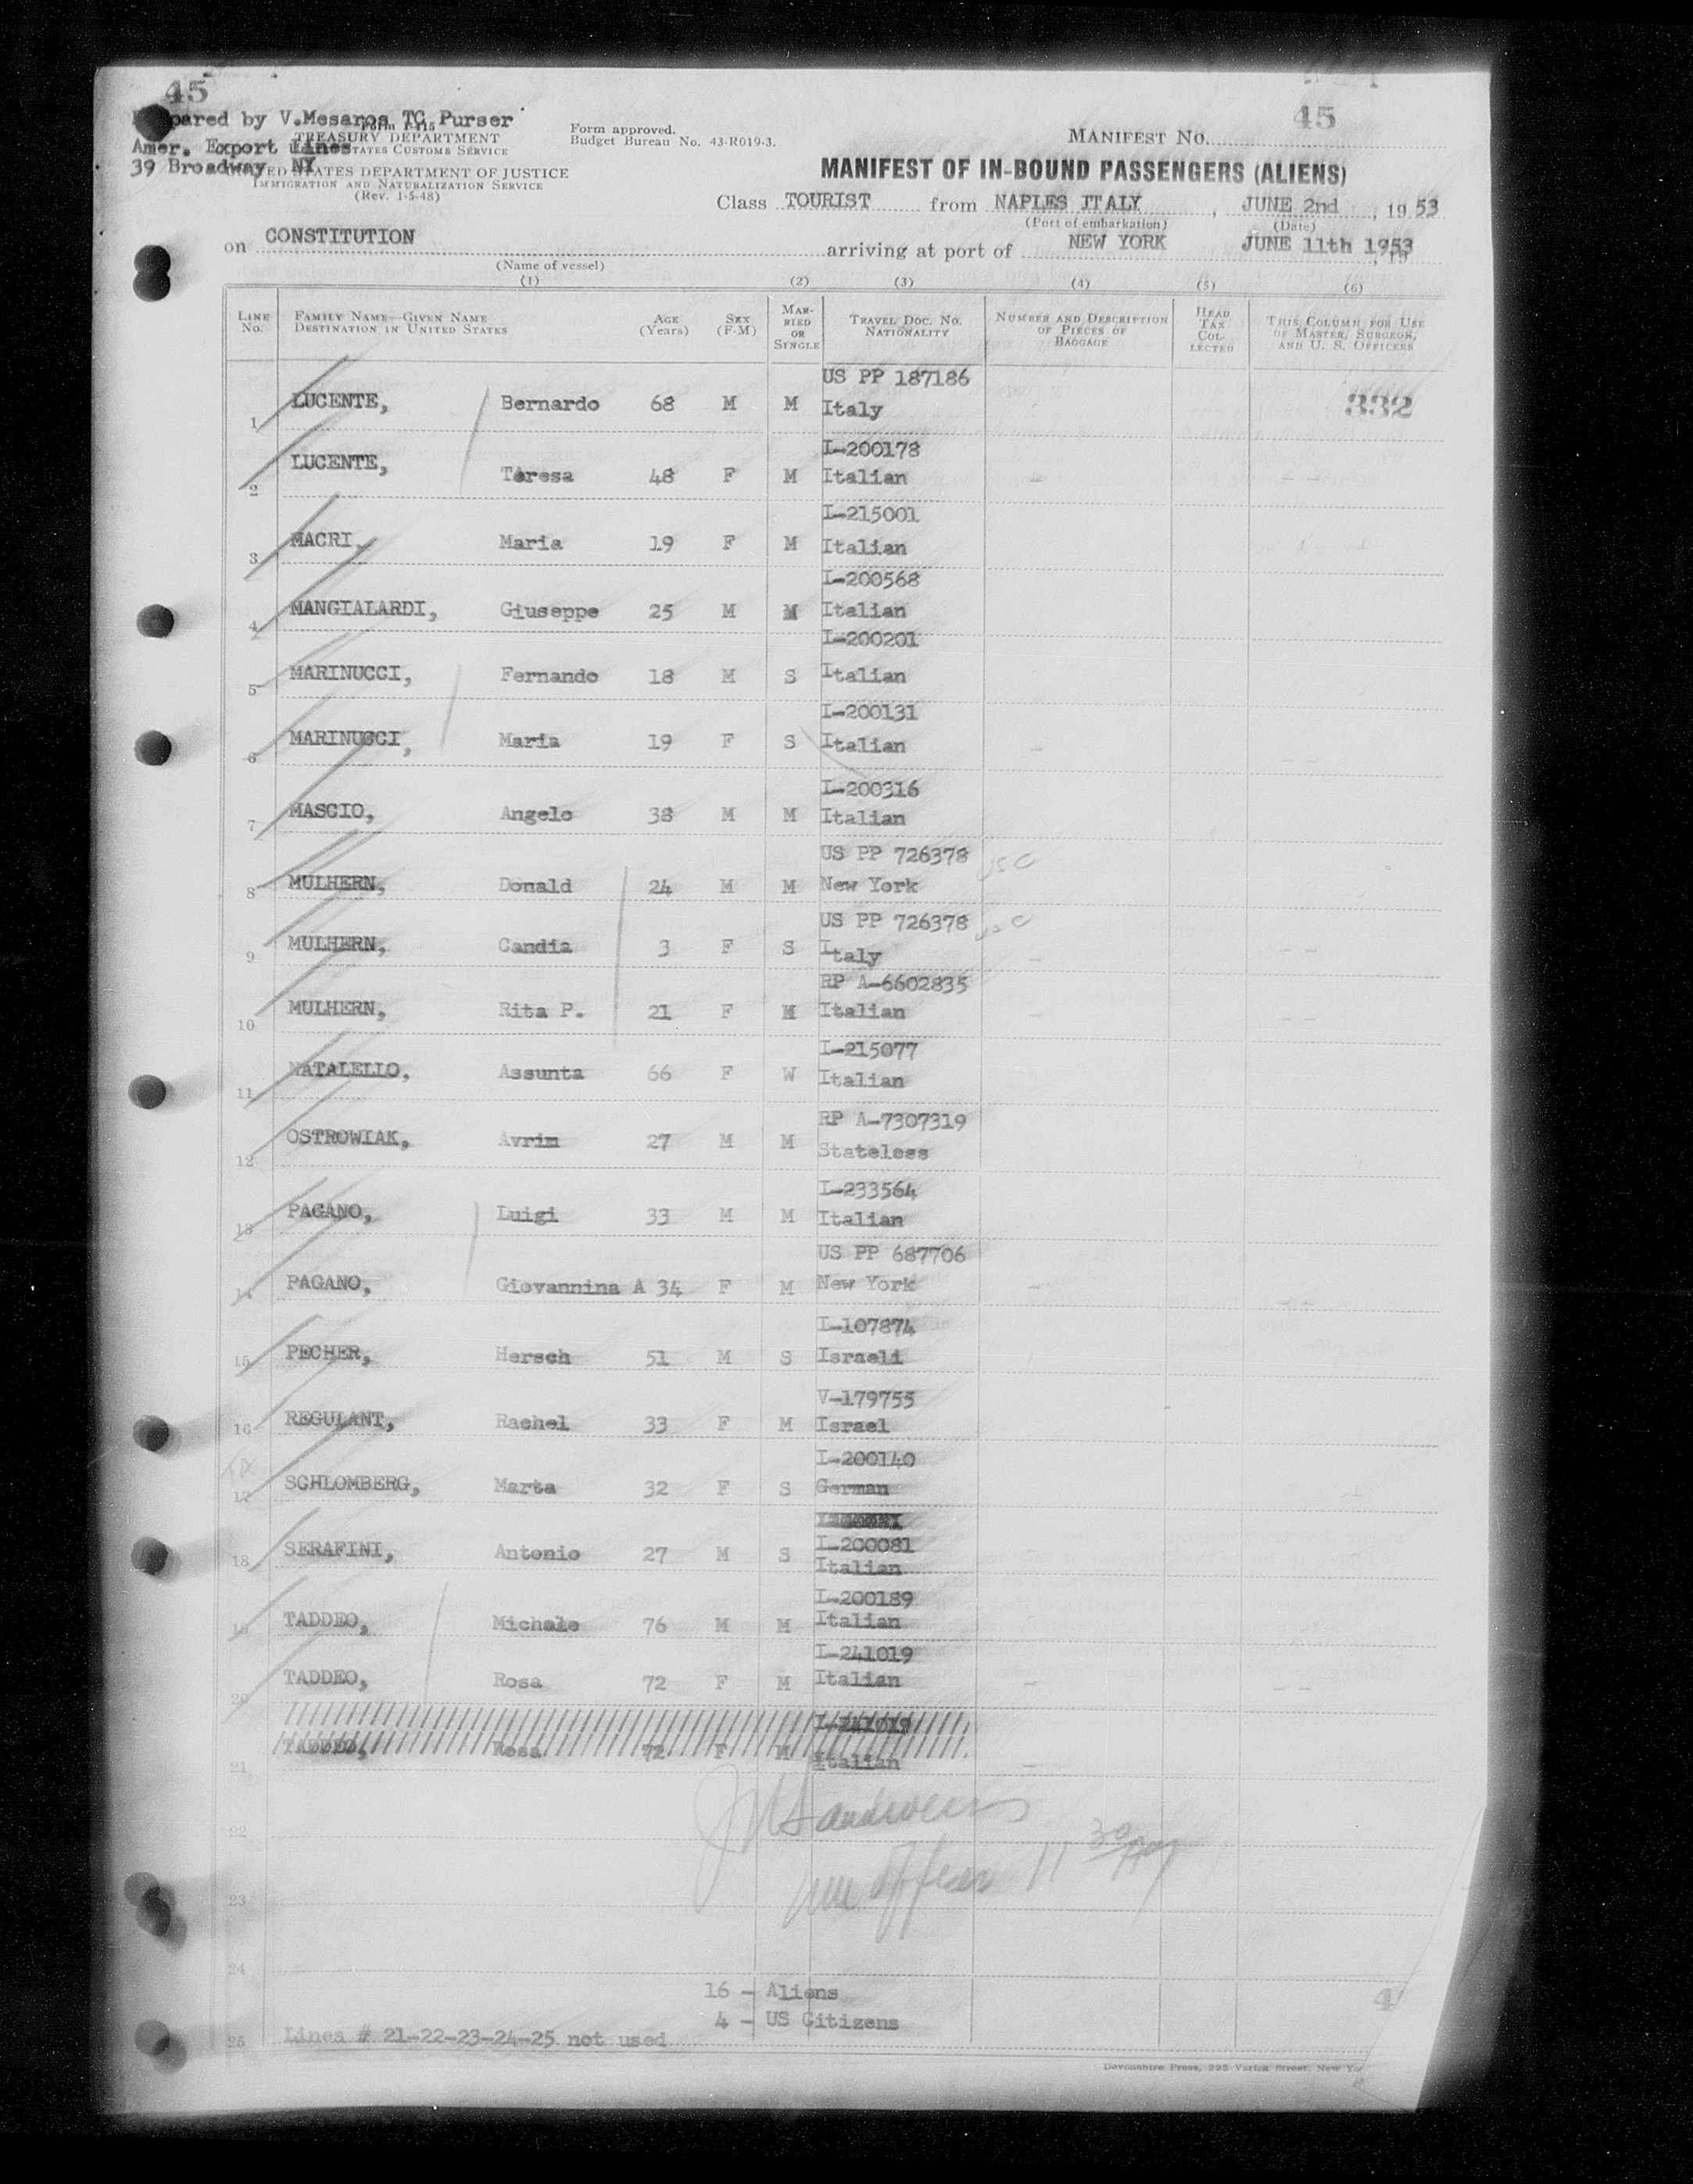 45
45
Prepared by V.Mesaros TC Purser
Amer. Export Lines
39 Broadway NY
Form I-415
TREASURY DEPARTMENT
UNITED STATES CUSTOMS SERVICE
UNITED STATES DEPARTMENT OF JUSTICE
IMMIGRATION AND NATURALIZATION SERVICE
(Rev. 1-5-48)
Form approved.
Budget Bureau No. 43-R019-3.
MANIFEST NO.
MANIFEST OF IN-BOUND PASSENGERS (ALIENS)
Class TOURIST from NAPLES ITALY, JUNE 2nd, 1953
(Port of embarkation) (Date)
on CONSTITUTION arriving at port of NEW YORK JUNE 11th 1953, 19
(Name of vessel)
(1) (2) (3) (4) (5) (6)
LINE No. FAMILY NAME—GIVEN NAME DESTINATION IN UNITED STATES AGE (Years) SEX (F-M) MARRIED OR SINGLE TRAVEL DOC. NO. NATIONALITY NUMBER AND DESCRIPTION OF PIECES OF BAGGAGE HEAD TAX COLLECTED THIS COLUMN FOR USE OF MASTER, SURGEON, AND U. S. OFFICERS
US PP 187186
1 LUCENTE, Bernardo 68 M M Italy 332
I-200178
2 LUCENTE, Teresa 48 F M Italian
I-215001
3 MACRI, Maria 19 F M Italian
I-200568
4 MANGIALARDI, Giuseppe 25 M M Italian
I-200201
5 MARINUCCI, Fernando 18 M S Italian
I-200131
6 MARINUCCI, Maria 19 F S Italian
I-200316
7 MASCIO, Angelo 38 M M Italian
US PP 726378 USC
8 MULHERN, Donald 24 M M New York
US PP 726378 USC
9 MULHERN, Candia 3 F S Italy
RP A-6602835
10 MULHERN, Rita P. 21 F M Italian
I-215077
11 NATALELLO, Assunta 66 F W Italian
RP A-7307319
12 OSTROWIAK, Avrim 27 M M Stateless
I-233564
13 PAGANO, Luigi 33 M M Italian
US PP 687706
14 PAGANO, Giovannina A 34 F M New York
I-107874
15 PECHER, Hersch 51 M S Israeli
V-179755
16 REGULANT, Rachel 33 F M Israel
I-200140
17 SCHLOMBERG, Marta 32 F S German
I-200081
18 SERAFINI, Antonio 27 M S Italian
I-200189
19 TADDEO, Michele 76 M M Italian
I-241019
20 TADDEO, Rosa 72 F M Italian
I-241019
21 TADDEO, Rosa 72 F M Italian
22
23
24
16 - Aliens
4 - US Citizens
4
25 Lines # 21-22-23-24-25 not used
Devonshire Press, 225 Varick Street, New Yo